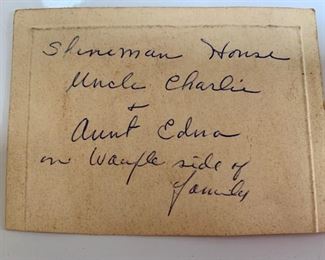 Shineman House
Uncle Charlie
+
Aunt Edna
on Waufle side of
family